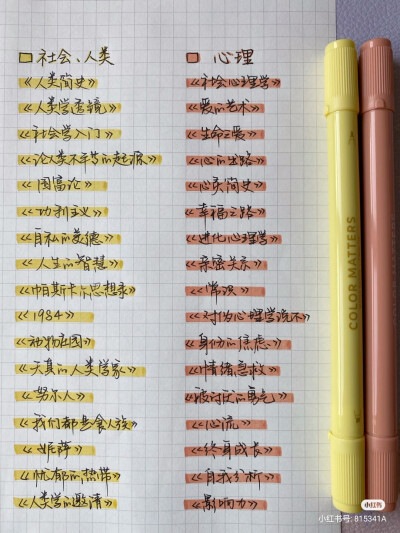 社会、人类
《人类简史》
《人类学透镜》
《社会学入门》
《论人类不平等的起源》
《国富论》
《功利主义》
《自私的美德》
《人生的智慧》
《帕斯卡尔思想录》
《1984》
《动物庄园》
《天真的人类学家》
《努尔人》
《我们都是食人族》
《妮萨》
《忧郁的热带》
《人类学的邀请》
心理
《社会心理学》
《爱的艺术》
《生命之爱》
《心的出路》
《心灵简史》
《幸福之路》
《进化心理学》
《亲密关系》
《常识》
《对伪心理学说不》
《身份的焦虑》
《情绪急救》
《被讨厌的勇气》
《心流》
《终身成长》
《自我分析》
《影响力》
COLOR MATTERS
小红书
小红书号: 815341A